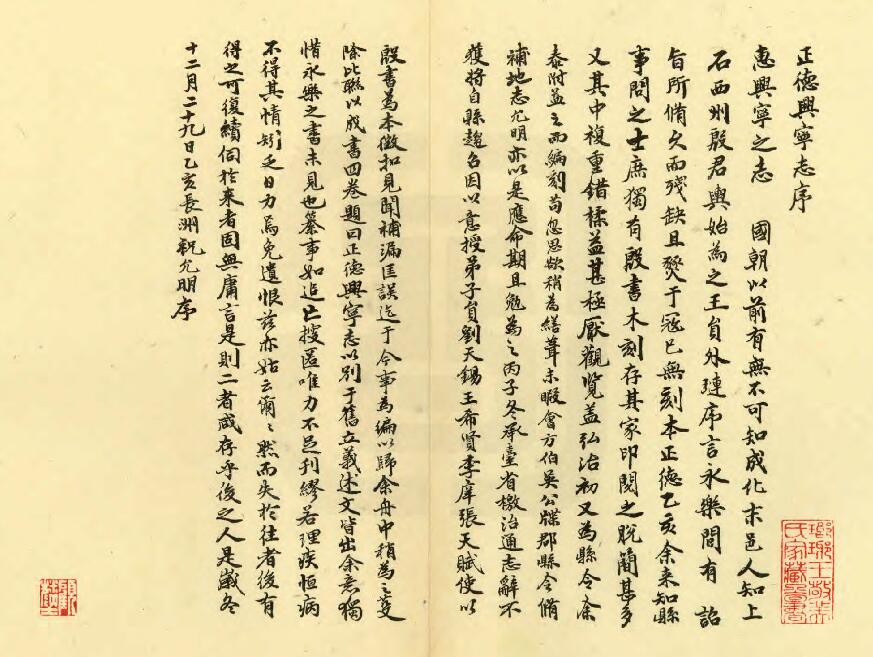 正德興寧志序
惠興寧之志 國朝以前有無不可知成化末邑人知上
石西州殷君輿始為之王員外璉序言永樂間有 詔
旨所備久而殘缺且燹于寇已無刻本正德乙亥余來知縣
事問之士庶獨有殷書木刻存其家印閱之脫簡甚多
又其中複重錯糅益甚極厭觀覽蓋弘治初又為縣令余
泰附益之而編刻苟忽思欲稍為繕葺未暇會方伯吳公牒郡縣令備
補地志允明亦以是應命期且勉為之丙子冬承臺省檄治通志辭不
獲將自縣趨召因以意授弟子員劉天錫王希賢李庠張天賦使以
殷書為本徵扣見聞補漏匡誤迄于今事為編以歸余舟中稍為之芟
除比聯以成書四卷題曰正德興寧志以別于舊立義述文皆出余意獨
惜永樂之書未見也纂事如追亡搜匿唯力不足刊繆若理疾恒病
不得其情矧乏日力焉免遺恨茲亦姑云爾爾然而失於往者後有
得之可復續伺於來者固無庸言是則二者咸存乎後之人是歲冬
十二月二十九日乙亥長洲祝允明序